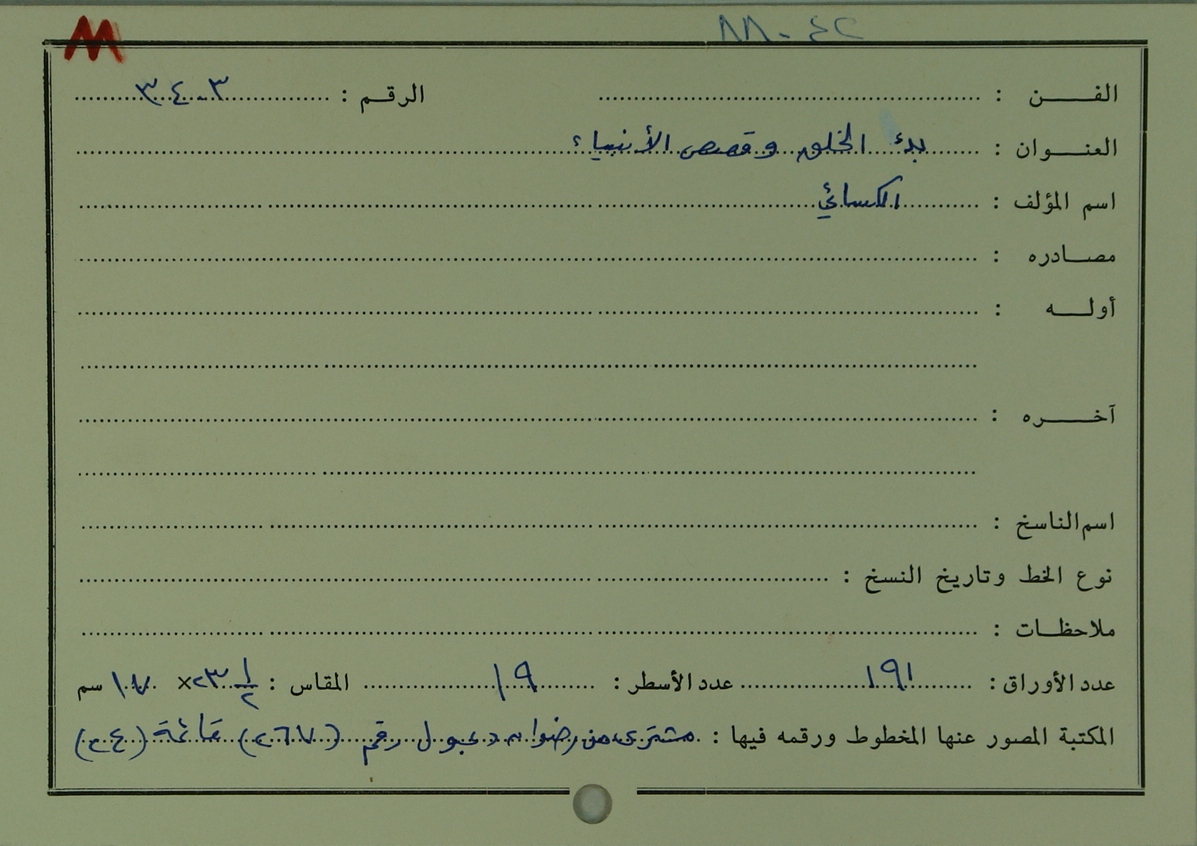 الفن :
الرقم : ٣٠٤٣
العنوان : بدء الخلق وقصص الأنبياء
اسم المؤلف : الكسائي
مصادره :
أوله :
آخره :
اسم الناسخ :
نوع الخط وتاريخ النسخ :
ملاحظات :
عدد الأوراق : ١٩١ عدد الأسطر : ١٩ المقاس : ٢٣ ١/٢ × سم
المكتبة المصور عنها المخطوط ورقمه فيها : مشترى من رضوان دعبول رقم (٢٦٧) قائمة